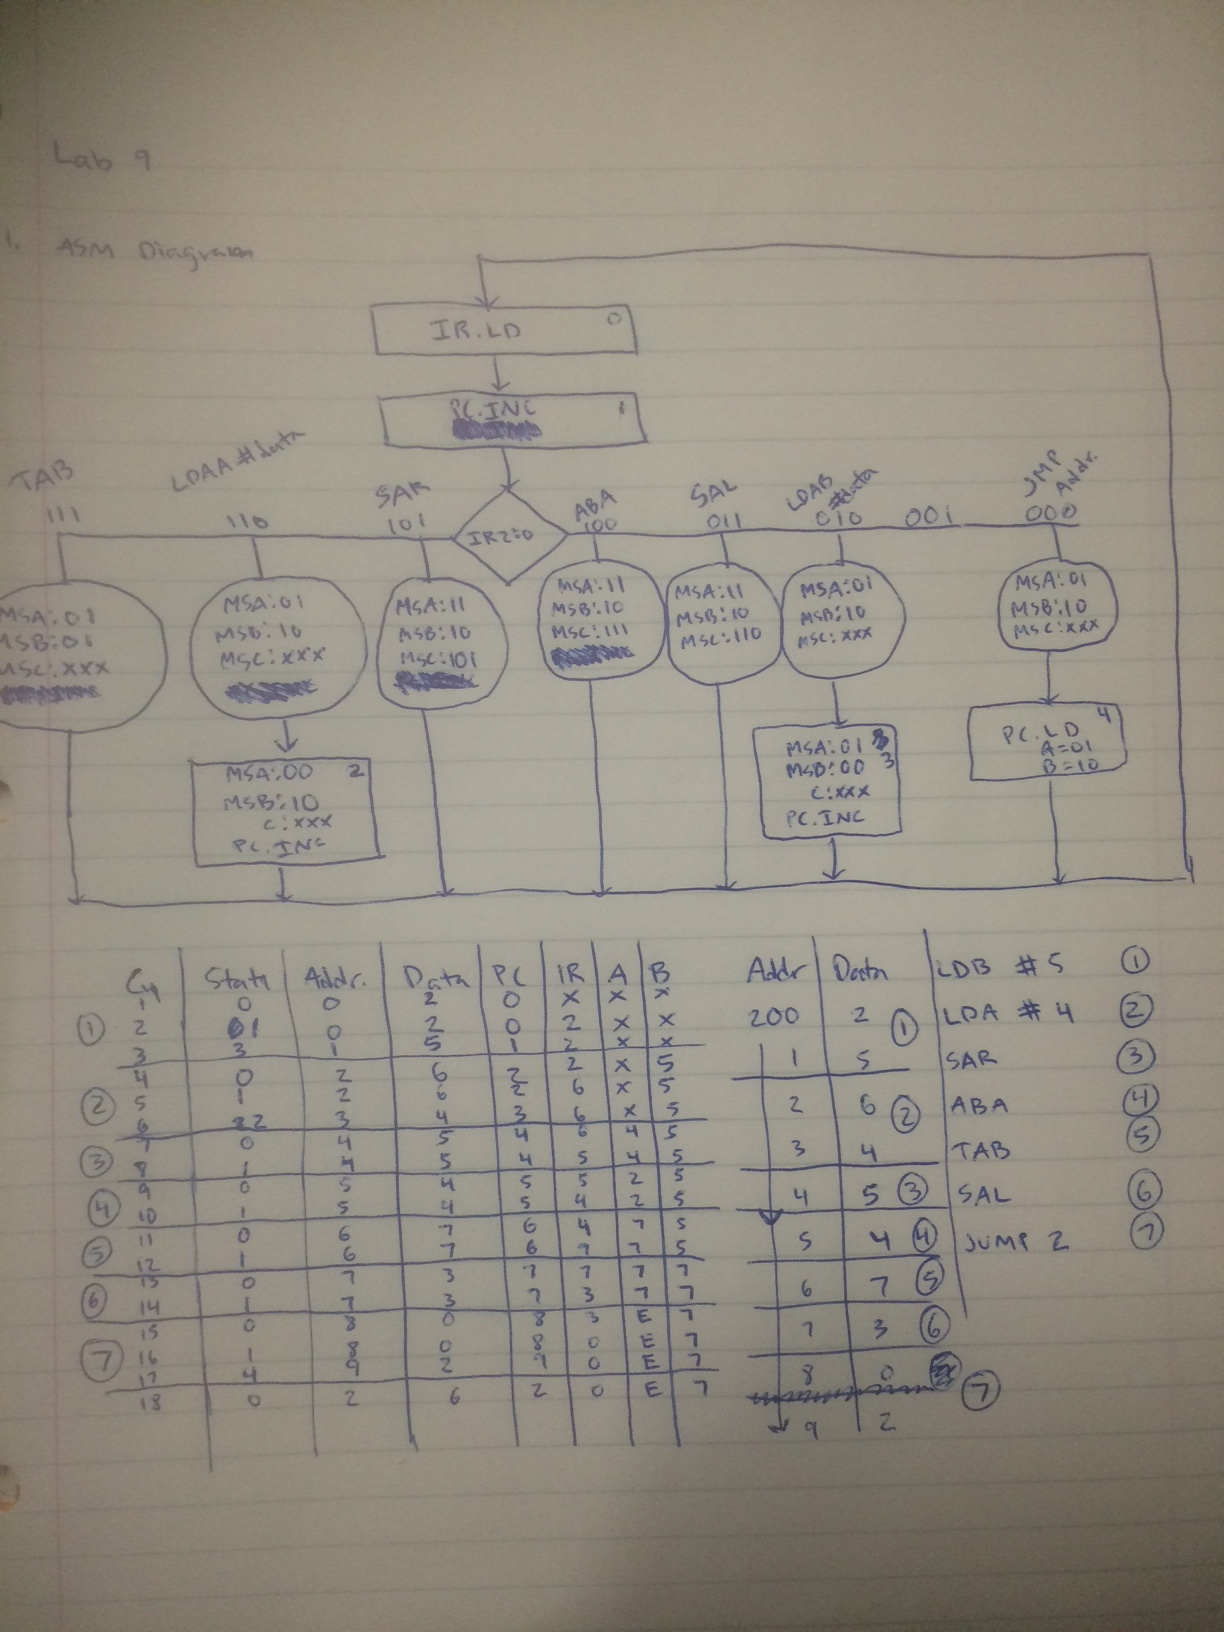 Lab 9
1. ASM Diagram
IR.LD 0
PC.INC 1
TAB LDAA #data SAR ABA SAL LDAB #data JMP Addr.
111 110 101 IR2:0 100 011 010 001 000
MSA:01 MSB:01 MSC:XXX
MSA:01 MSB:10 MSC:XXX
MSA:11 MSB:10 MSC:101
MSA:11 MSB:10 MSC:111
MSA:11 MSB:10 MSC:110
MSA:01 MSB:10 MSC:XXX
MSA:01 MSB:10 MSC:XXX
MSA:00 2
MSB:10
C:XXX
PC.INC
MSA:01 3
MSB:00
C:XXX
PC.INC
PC.LD 4
A=01
B=10
Cy State Addr. Data PC IR A B
1 0 0 2 0 X X X
① 2 1 0 2 0 2 X X
3 3 1 5 1 2 X X
4 0 2 6 2 2 X 5
② 5 1 2 6 2 6 X 5
6 2 3 4 3 6 X 5
7 0 4 5 4 6 4 5
③ 8 1 4 5 4 5 4 5
9 0 5 4 5 5 2 5
④ 10 1 5 4 5 4 2 5
11 0 6 7 6 4 7 5
⑤ 12 1 6 7 6 7 7 5
13 0 7 3 7 7 7 7
⑥ 14 1 7 3 7 3 7 7
15 0 8 0 8 3 E 7
⑦ 16 1 8 0 8 0 E 7
17 4 9 2 9 0 E 7
18 0 2 6 2 0 E 7
Addr Data
200 2 ①
1 5
2 6 ②
3 4
4 5 ③
5 4 ④
6 7 ⑤
7 3 ⑥
8 0
⑦
9 2
LDB #5 ①
LDA #4 ②
SAR ③
ABA ④
TAB ⑤
SAL ⑥
JUMP 2 ⑦